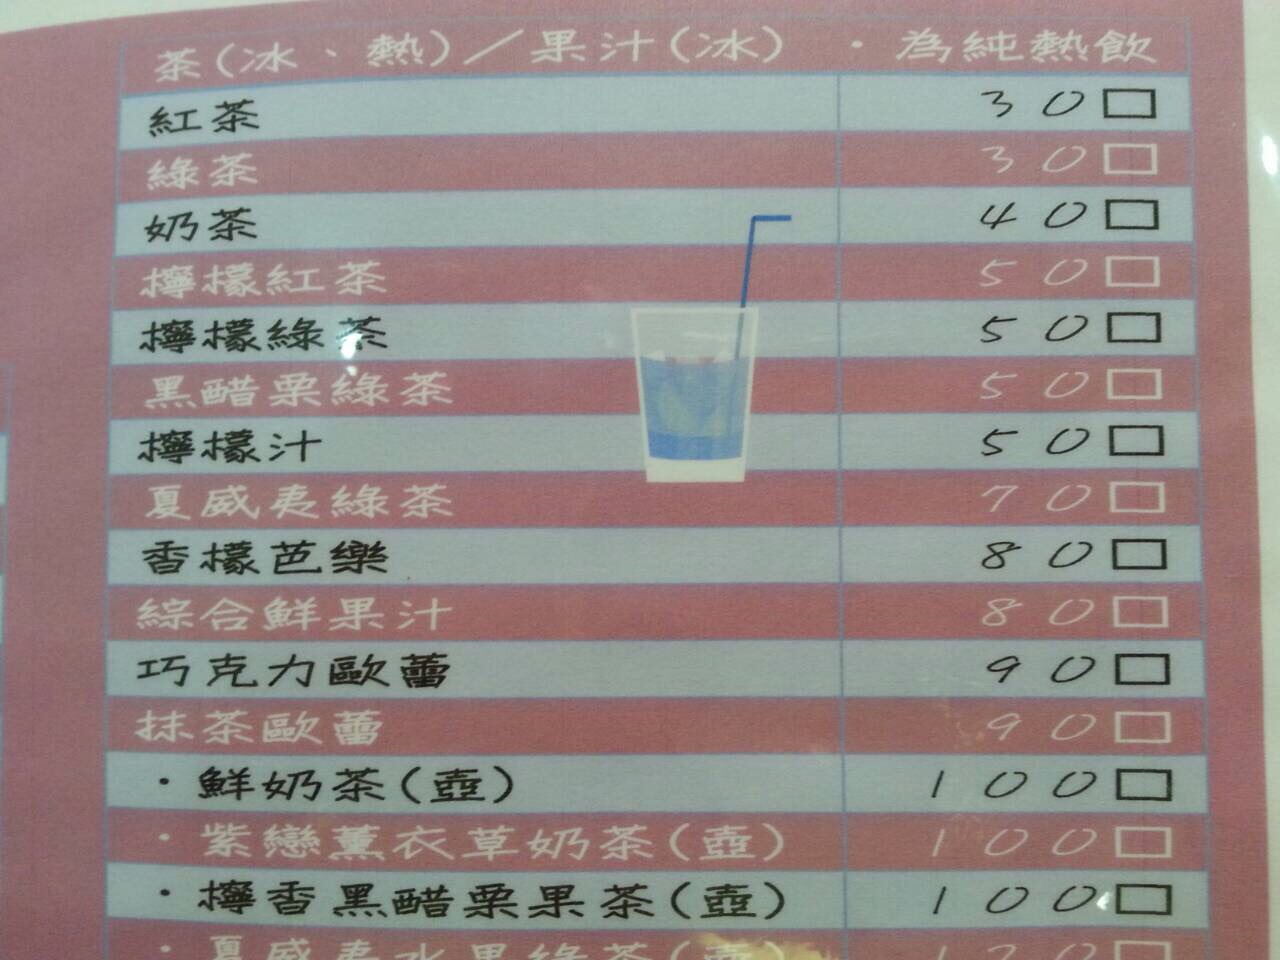 茶(冰、熱)／果汁(冰) ．為純熱飲
紅茶 30□
綠茶 30□
奶茶 40□
檸檬紅茶 50□
檸檬綠茶 50□
黑醋栗綠茶 50□
檸檬汁 50□
夏威夷綠茶 70□
香檬芭樂 80□
綜合鮮果汁 80□
巧克力歐蕾 90□
抹茶歐蕾 90□
．鮮奶茶(壺) 100□
．紫戀薰衣草奶茶(壺) 100□
．檸香黑醋栗果茶(壺) 100□
．夏威夷水果綠茶(壺) 120□